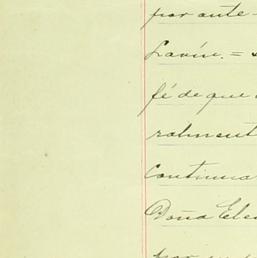 por ante
Lavín. =
fé de que
ralment
continua
Doña Ele
por